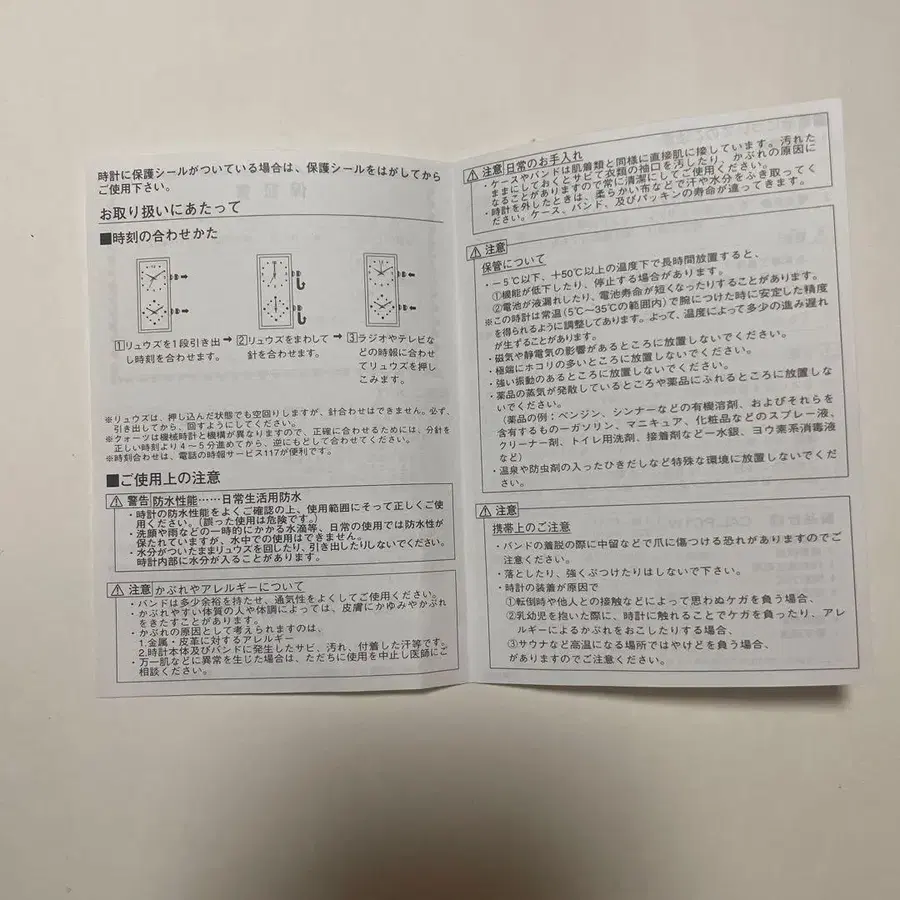 時計に保護シールがついている場合は、保護シールをはがしてから
ご使用下さい。
お取り扱いにあたって
■時刻の合わせかた
1リュウズを1段引き出
し時刻を合わせます。
2リュウズをまわして
針を合わせます。
3ラジオやテレビな
どの時報に合わせ
てリュウズを押し
こみます。
※リュウズは、押し込んだ状態でも空回りしますが、針合わせはできません。必ず、
引き出してから、回すようにしてください。
※クォーツは機械時計と機構が異なりますので、正確に合わせるためには、分針を
正しい時刻より4〜5分進めてから、逆にもどして合わせてください。
※時刻合わせは、電話の時報サービス117が便利です。
■ご使用上の注意
⚠警告 防水性能……日常生活用防水
・時計の防水性能をよくご確認の上、使用範囲にそって正しくご使
用ください。(誤った使用は危険です。)
・洗顔や雨などの一時的にかかる水滴等、日常の使用では防水性が
保たれていますが、水中での使用はできません。
・水分がついたままリュウズを回したり、引き出したりしないでください。
時計内部に水分が入ることがあります。
⚠注意 かぶれやアレルギーについて
・バンドは多少余裕を持たせ、通気性をよくしてご使用ください。
・かぶれやすい体質の人や体調によっては、皮膚にかゆみやかぶれ
をきたすことがあります。
・かぶれの原因として考えられますのは、
1.金属・皮革に対するアレルギー
2.時計本体及びバンドに発生したサビ、汚れ、付着した汗等です。
・万一肌などに異常を生じた場合は、ただちに使用を中止し医師にご
相談ください。
⚠注意 日常のお手入れ
・ケースやバンドは肌着類と同様に直接肌に接しています。汚れた
ままにしておくとサビて衣類の袖口を汚したり、かぶれの原因に
なることがありますので常に清潔にしてご使用ください。
・時計を外したときは、柔らかい布などで汗や水分をふき取ってく
ださい。ケース、バンド、及びパッキンの寿命が違ってきます。
⚠注意
保管について
・−5℃以下、+50℃以上の温度下で長時間放置すると、
①機能が低下したり、停止する場合があります。
②電池が液漏れしたり、電池寿命が短くなったりすることがあります。
※この時計は常温(5℃〜35℃の範囲内)で腕につけた時に安定した精度
を得られるように調整してあります。よって、温度によって多少の進み遅れ
が生ずることがあります。
・磁気や静電気の影響があるところに放置しないでください。
・極端にホコリの多いところに放置しないでください。
・強い振動のあるところに放置しないでください。
・薬品の蒸気が発散しているところや薬品にふれるところに放置しな
いでください。
(薬品の例：ベンジン、シンナーなどの有機溶剤、およびそれらを
含有するものーガソリン、マニキュア、化粧品などのスプレー液、
クリーナー剤、トイレ用洗剤、接着剤など一水銀、ヨウ素系消毒液
など)
・温泉や防虫剤の入ったひきだしなど特殊な環境に放置しないでくだ
さい。
⚠注意
携帯上のご注意
・バンドの着脱の際に中留などで爪に傷つける恐れがありますのでご
注意ください。
・落としたり、強くぶつけたりはしないで下さい。
・時計の装着が原因で
①転倒時や他人との接触などによって思わぬケガを負う場合、
②乳幼児を抱いた際に、時計に触れることでケガを負ったり、アレ
ルギーによるかぶれをおこしたりする場合、
③サウナなど高温になる場所ではやけどを負う場合、
がありますのでご注意ください。